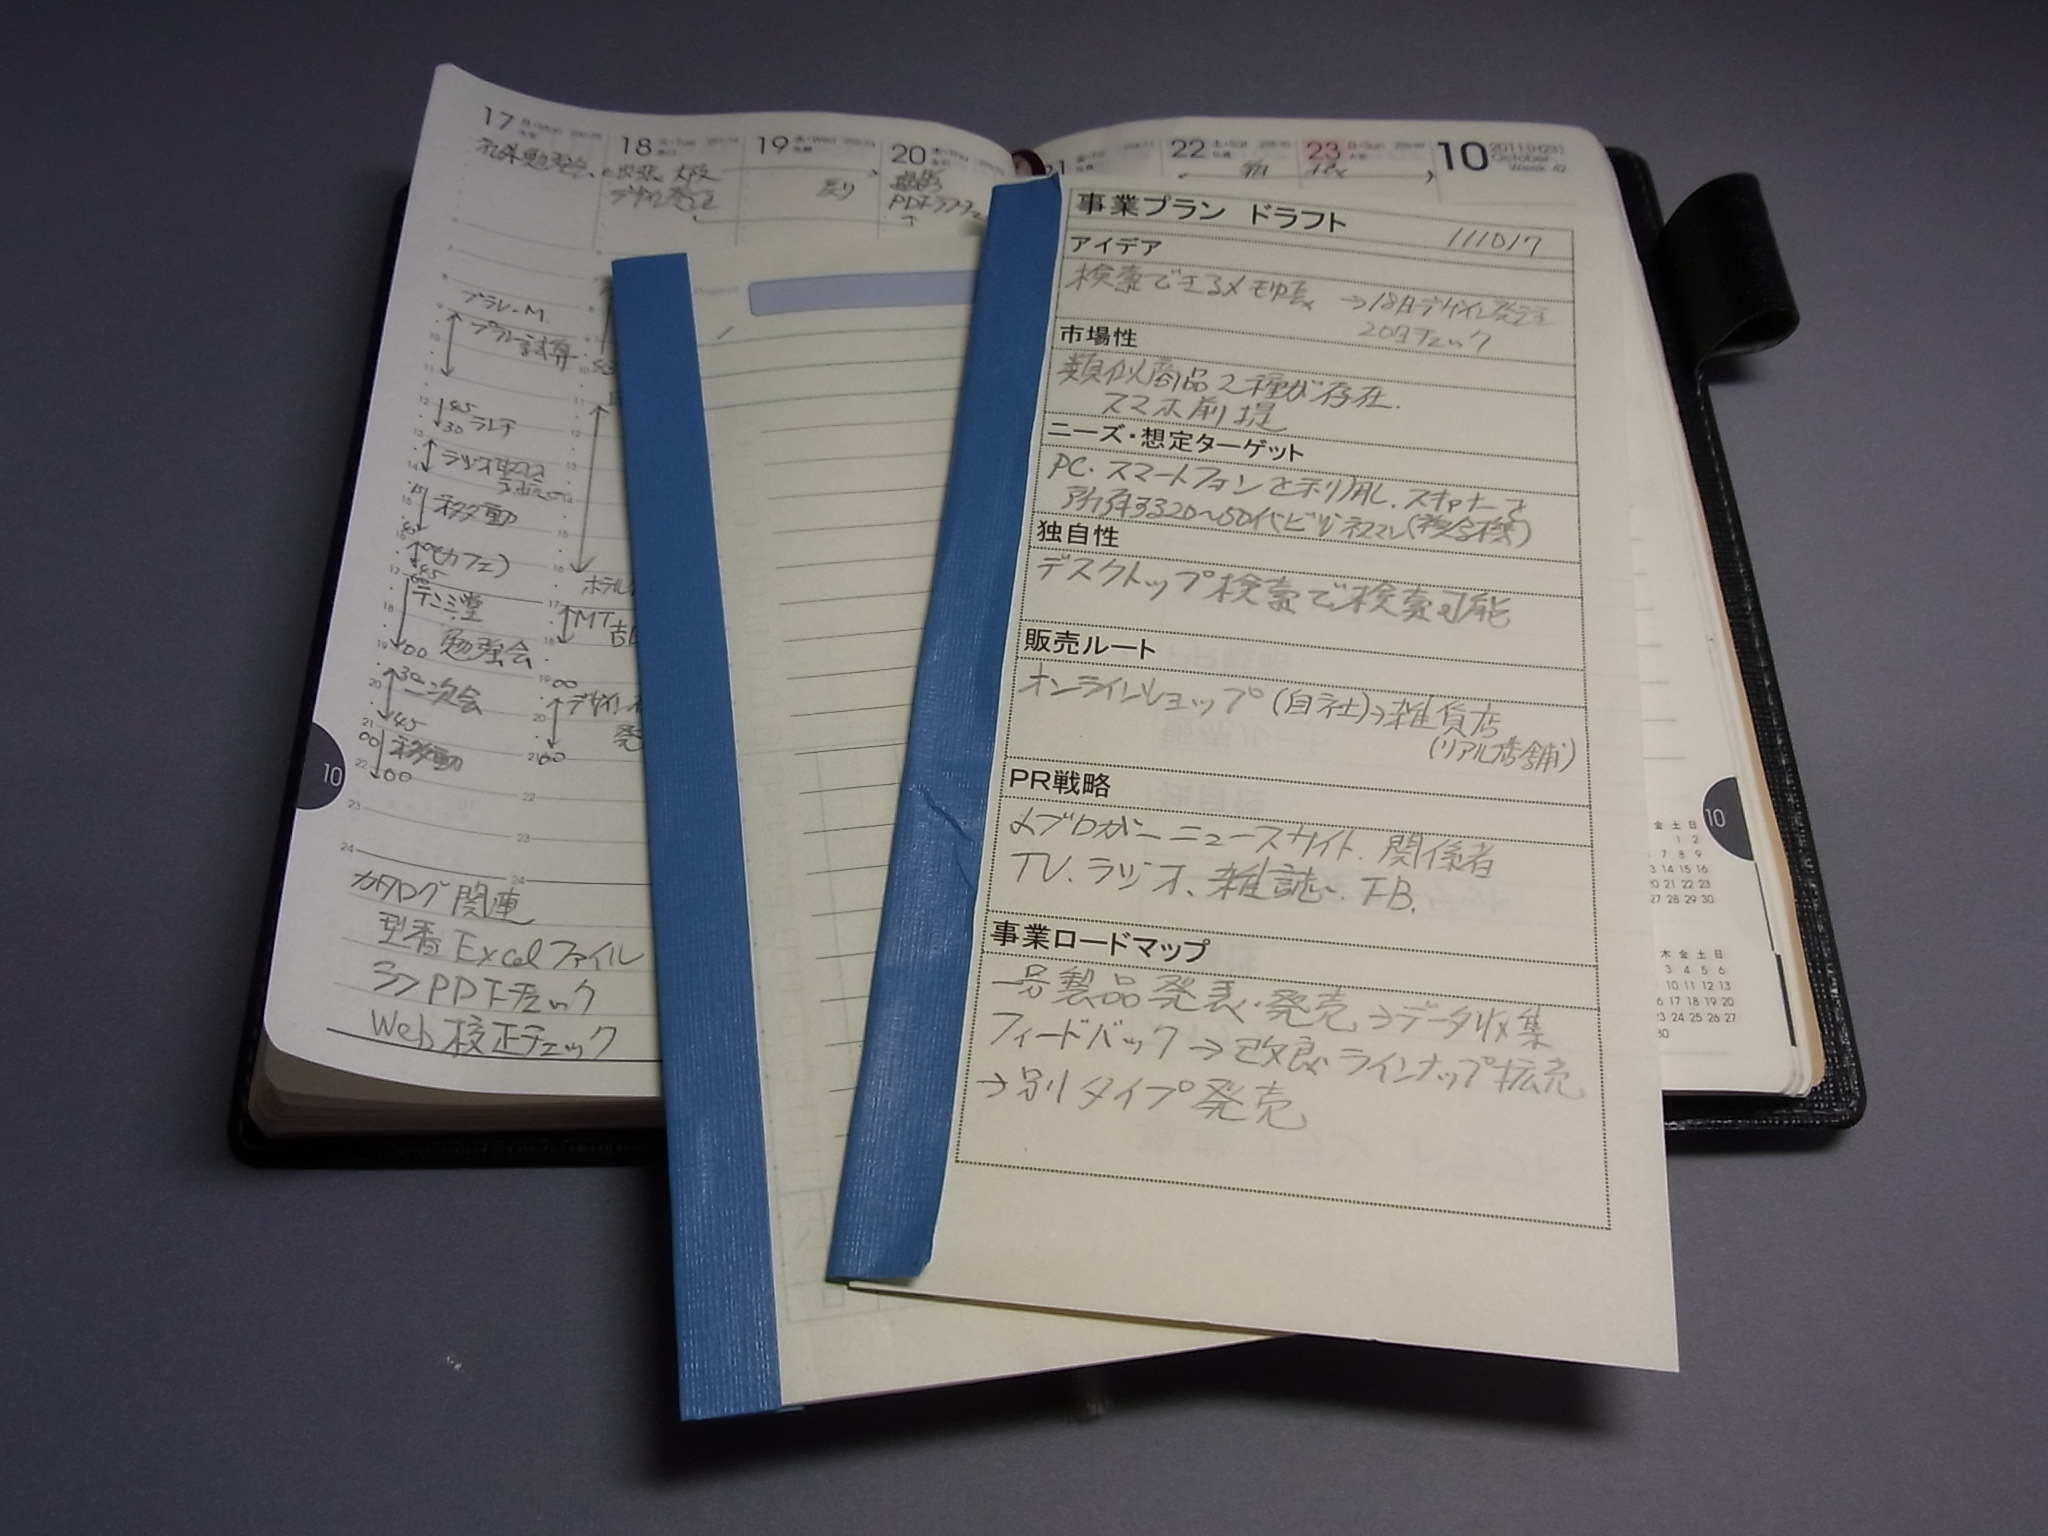 17 月・Mon
18 火・Tue
19 水・Wed
20 木・Thu
21 金・Fri
22 土・Sat
23 日・Sun
10 2011(H23)
October
Week 42
社外勉強会
出張 大阪
デザイン発注
戻り
プラレ-M.
プラレ-試着
45
30 ラチ
ラジオ
移動
(カフェ)
45
勉強会
00
30
二次会
45
00 移動
00
ホテル
MT
00
デザイン
発
00
カタログ関連
型番Excelファイル
PDFチェック
Web校正チェック
10
Project
事業プラン ドラフト
111017
アイデア
検索できるメモ帳 → 18日デザイン発注
20日チェック
市場性
類似商品2種が存在.
スマホ前提
ニーズ・想定ターゲット
PC・スマートフォンを利用し、スキャナーを
所有する20〜50代ビジネスマン(複合機)
独自性
デスクトップ検索で検索可能
販売ルート
オンラインショップ(自社)→雑貨店
(リアル店舗)
PR戦略
メブロガー ニュースサイト、関係者
TV、ラジオ、雑誌、FB.
事業ロードマップ
一号製品発表・発売→データ収集
フィードバック→改良 ラインナップ拡充
→別タイプ発売
10
金 土 日
1 2
7 8 9
13 14 15 16
20 21 22 23
27 28 29 30
木 金 土 日
3 4 5 6
9 10 11 12 13
16 17 18 19 20
23 24 25 26 27
30